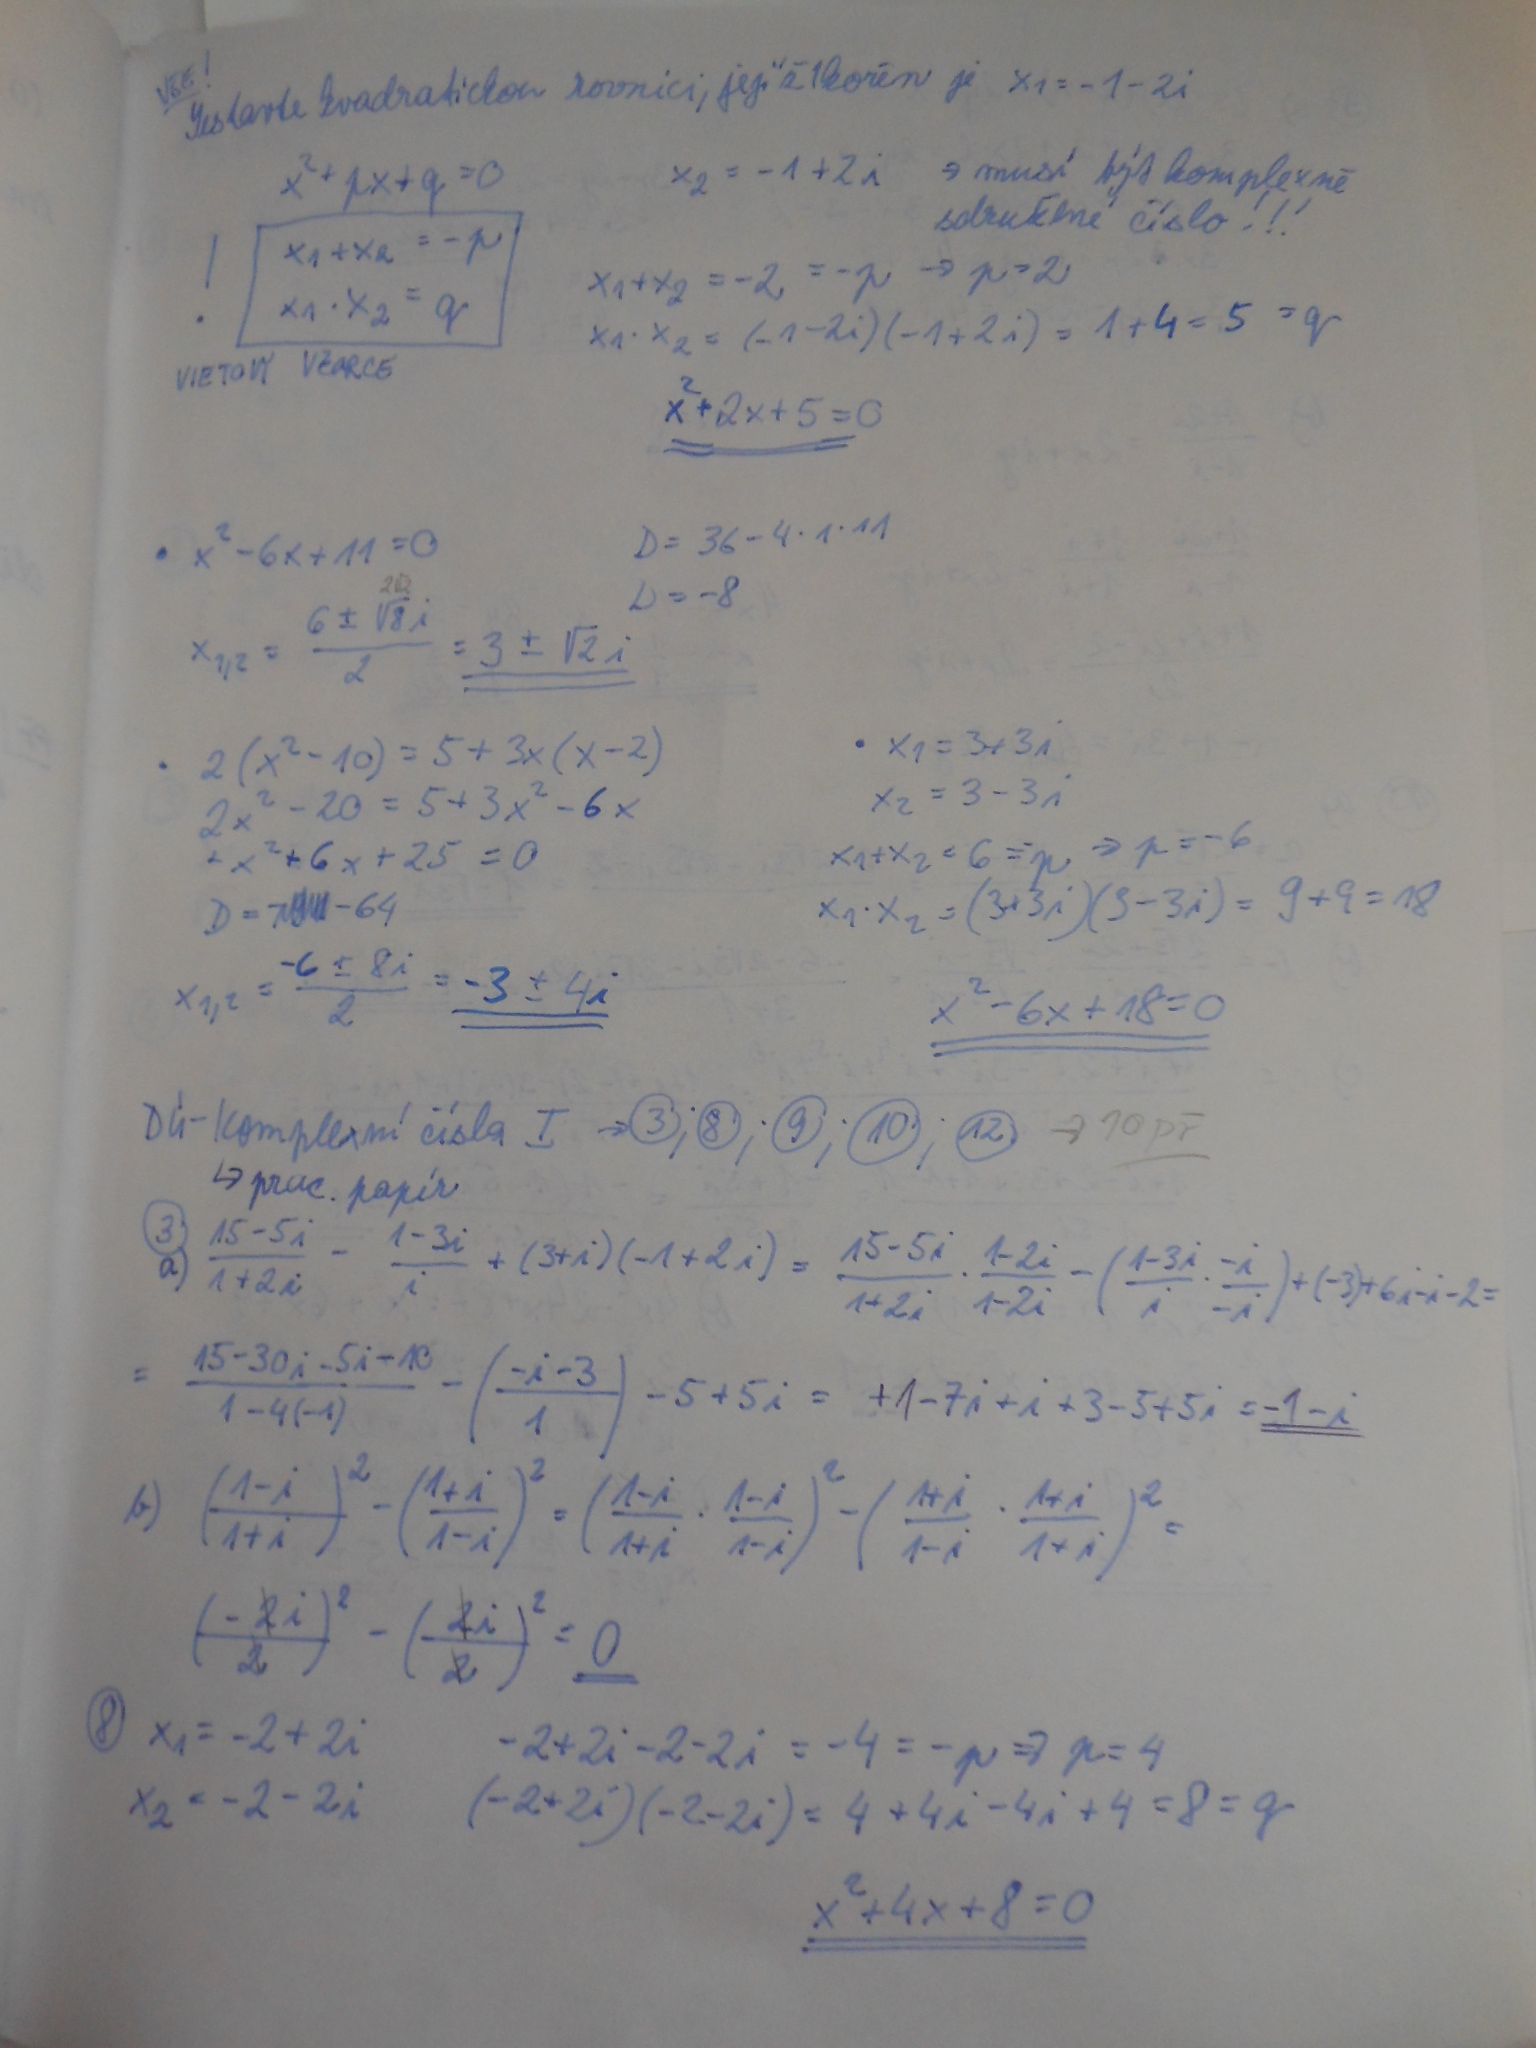 VŠE!
Sestavte kvadratickou rovnici, jejíž 1 kořen je x₁ = -1 - 2i
x² + px + q = 0
x₂ = -1 + 2i → musí být komplexně
sdružené číslo!!!
! x₁ + x₂ = -p
x₁ · x₂ = q
VIETOVY VZORCE
x₁ + x₂ = -2 = -p → p = 2
x₁ · x₂ = (-1 - 2i)(-1 + 2i) = 1 + 4 = 5 = q
x² + 2x + 5 = 0
• x² - 6x + 11 = 0
D = 36 - 4 · 1 · 11
D = -8
x₁,₂ = (6 ± √8 i)/2 = 3 ± √2 i
• 2(x² - 10) = 5 + 3x(x - 2)
2x² - 20 = 5 + 3x² - 6x
-x² + 6x + 25 = 0
D = -64
x₁,₂ = (-6 ± 8i)/2 = -3 ± 4i
• x₁ = 3 + 3i
x₂ = 3 - 3i
x₁ + x₂ = 6 = -p → p = -6
x₁ · x₂ = (3 + 3i)(3 - 3i) = 9 + 9 = 18
x² - 6x + 18 = 0
DÚ - Komplexní čísla I → 3; 8; 9; 10; 12 → 10 př
↳ prac. papír
3 a) (15 - 5i)/(1 + 2i) - (1 - 3i)/i + (3 + i)(-1 + 2i) = (15 - 5i)/(1 + 2i) · (1 - 2i)/(1 - 2i) - ((1 - 3i)/i · (-i)/(-i)) + (-3) + 6i - i - 2 =
= (15 - 30i - 5i - 10)/(1 - 4(-1)) - ((-i - 3)/1) - 5 + 5i = +1 - 7i + i + 3 - 5 + 5i = -1 - i
b) ((1 - i)/(1 + i))² - ((1 + i)/(1 - i))² = ((1 - i)/(1 + i) · (1 - i)/(1 - i))² - ((1 + i)/(1 - i) · (1 + i)/(1 + i))² =
(-2i/2)² - (2i/2)² = 0
8 x₁ = -2 + 2i
x₂ = -2 - 2i
-2 + 2i - 2 - 2i = -4 = -p ⇒ p = 4
(-2 + 2i)(-2 - 2i) = 4 + 4i - 4i + 4 = 8 = q
x² + 4x + 8 = 0